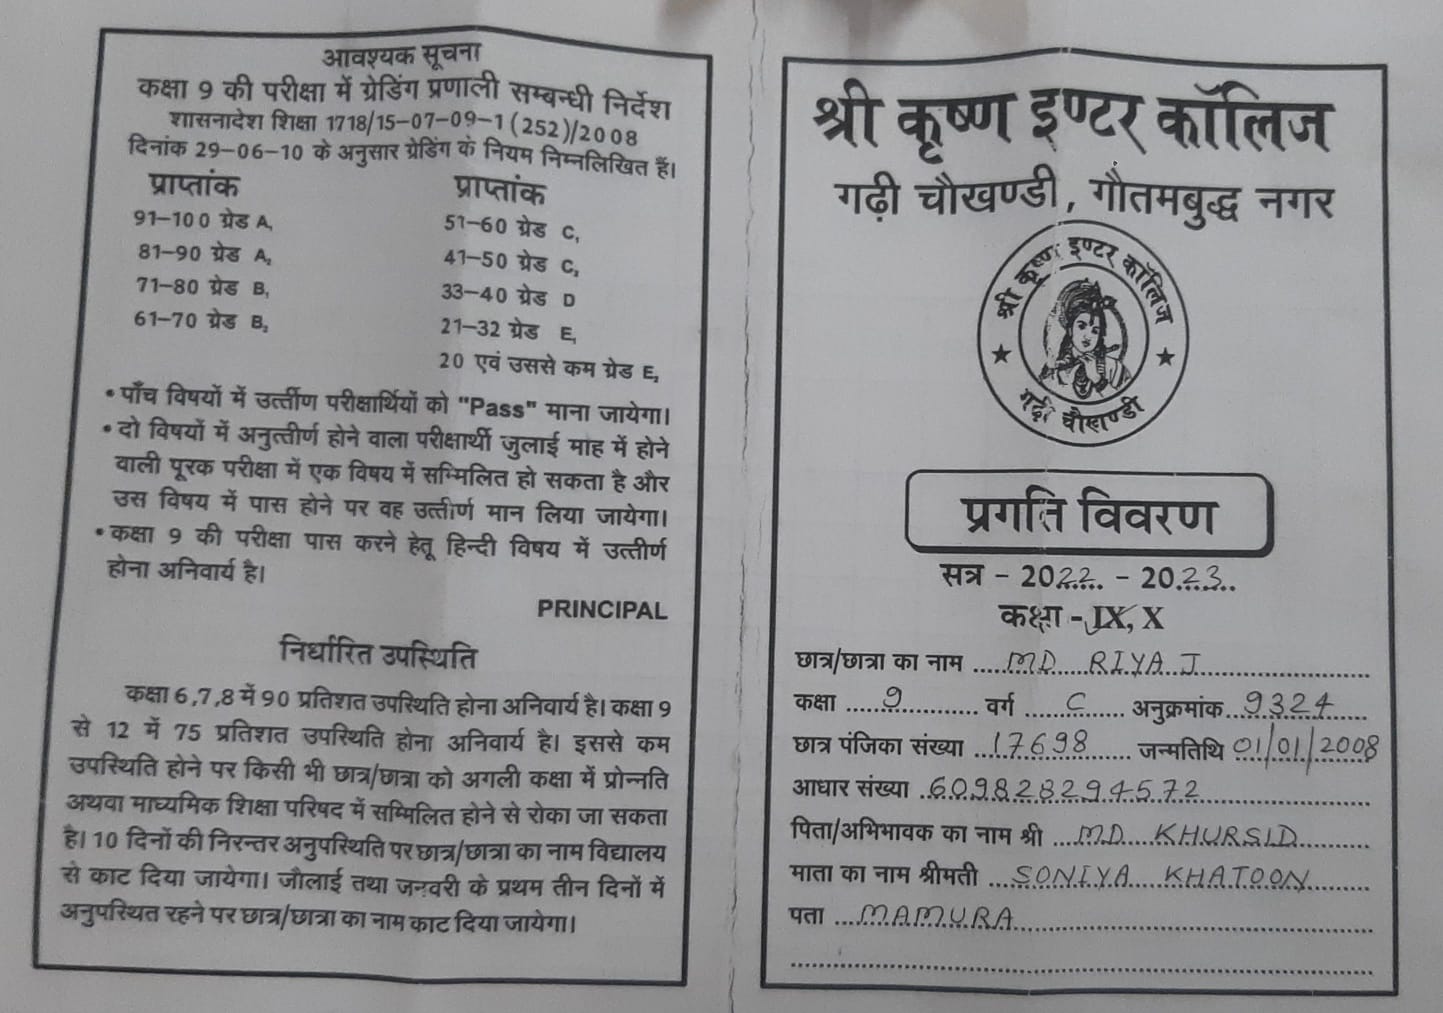 आवश्यक सूचना
कक्षा 9 की परीक्षा में ग्रेडिंग प्रणाली सम्बन्धी निर्देश
शासनादेश शिक्षा 1718/15-07-09-1 (252)/2008
दिनांक 29-06-10 के अनुसार ग्रेडिंग के नियम निम्नलिखित हैं।
प्राप्तांक प्राप्तांक
91-100 ग्रेड A₁ 51-60 ग्रेड C₁
81-90 ग्रेड A₂ 41-50 ग्रेड C₂
71-80 ग्रेड B₁ 33-40 ग्रेड D
61-70 ग्रेड B₂ 21-32 ग्रेड E₁
20 एवं उससे कम ग्रेड E₂
• पाँच विषयों में उर्त्तीण परीक्षार्थियों को "Pass" माना जायेगा।
• दो विषयों में अनुत्तीर्ण होने वाला परीक्षार्थी जुलाई माह में होने
वाली पूरक परीक्षा में एक विषय में सम्मिलित हो सकता है और
उस विषय में पास होने पर वह उत्तीर्ण मान लिया जायेगा।
• कक्षा 9 की परीक्षा पास करने हेतू हिन्दी विषय में उत्तीर्ण
होना अनिवार्य है।
PRINCIPAL
निर्धारित उपस्थिति
कक्षा 6,7,8 में 90 प्रतिशत उपस्थिति होना अनिवार्य है। कक्षा 9
से 12 में 75 प्रतिशत उपस्थिति होना अनिवार्य है। इससे कम
उपस्थिति होने पर किसी भी छात्र/छात्रा को अगली कक्षा में प्रोन्नति
अथवा माध्यमिक शिक्षा परिषद में सम्मिलित होने से रोका जा सकता
है। 10 दिनों की निरन्तर अनुपस्थिति पर छात्र/छात्रा का नाम विद्यालय
से काट दिया जायेगा। जौलाई तथा जनवरी के प्रथम तीन दिनों में
अनुपस्थित रहने पर छात्र/छात्रा का नाम काट दिया जायेगा।
श्री कृष्ण इण्टर कॉलिज
गढ़ी चौखण्डी, गौतमबुद्ध नगर
श्री कृष्ण इण्टर कॉलिज
गढ़ी चौखण्डी
प्रगति विवरण
सत्र - 2022 - 2023
कक्षा - IX, X
छात्र/छात्रा का नाम MD RIYAJ
कक्षा 9 वर्ग C अनुक्रमांक 9324
छात्र पंजिका संख्या 17698 जन्मतिथि 01/01/2008
आधार संख्या 609828294572
पिता/अभिभावक का नाम श्री MD KHURSID
माता का नाम श्रीमती SONIYA KHATOON
पता MAMURA